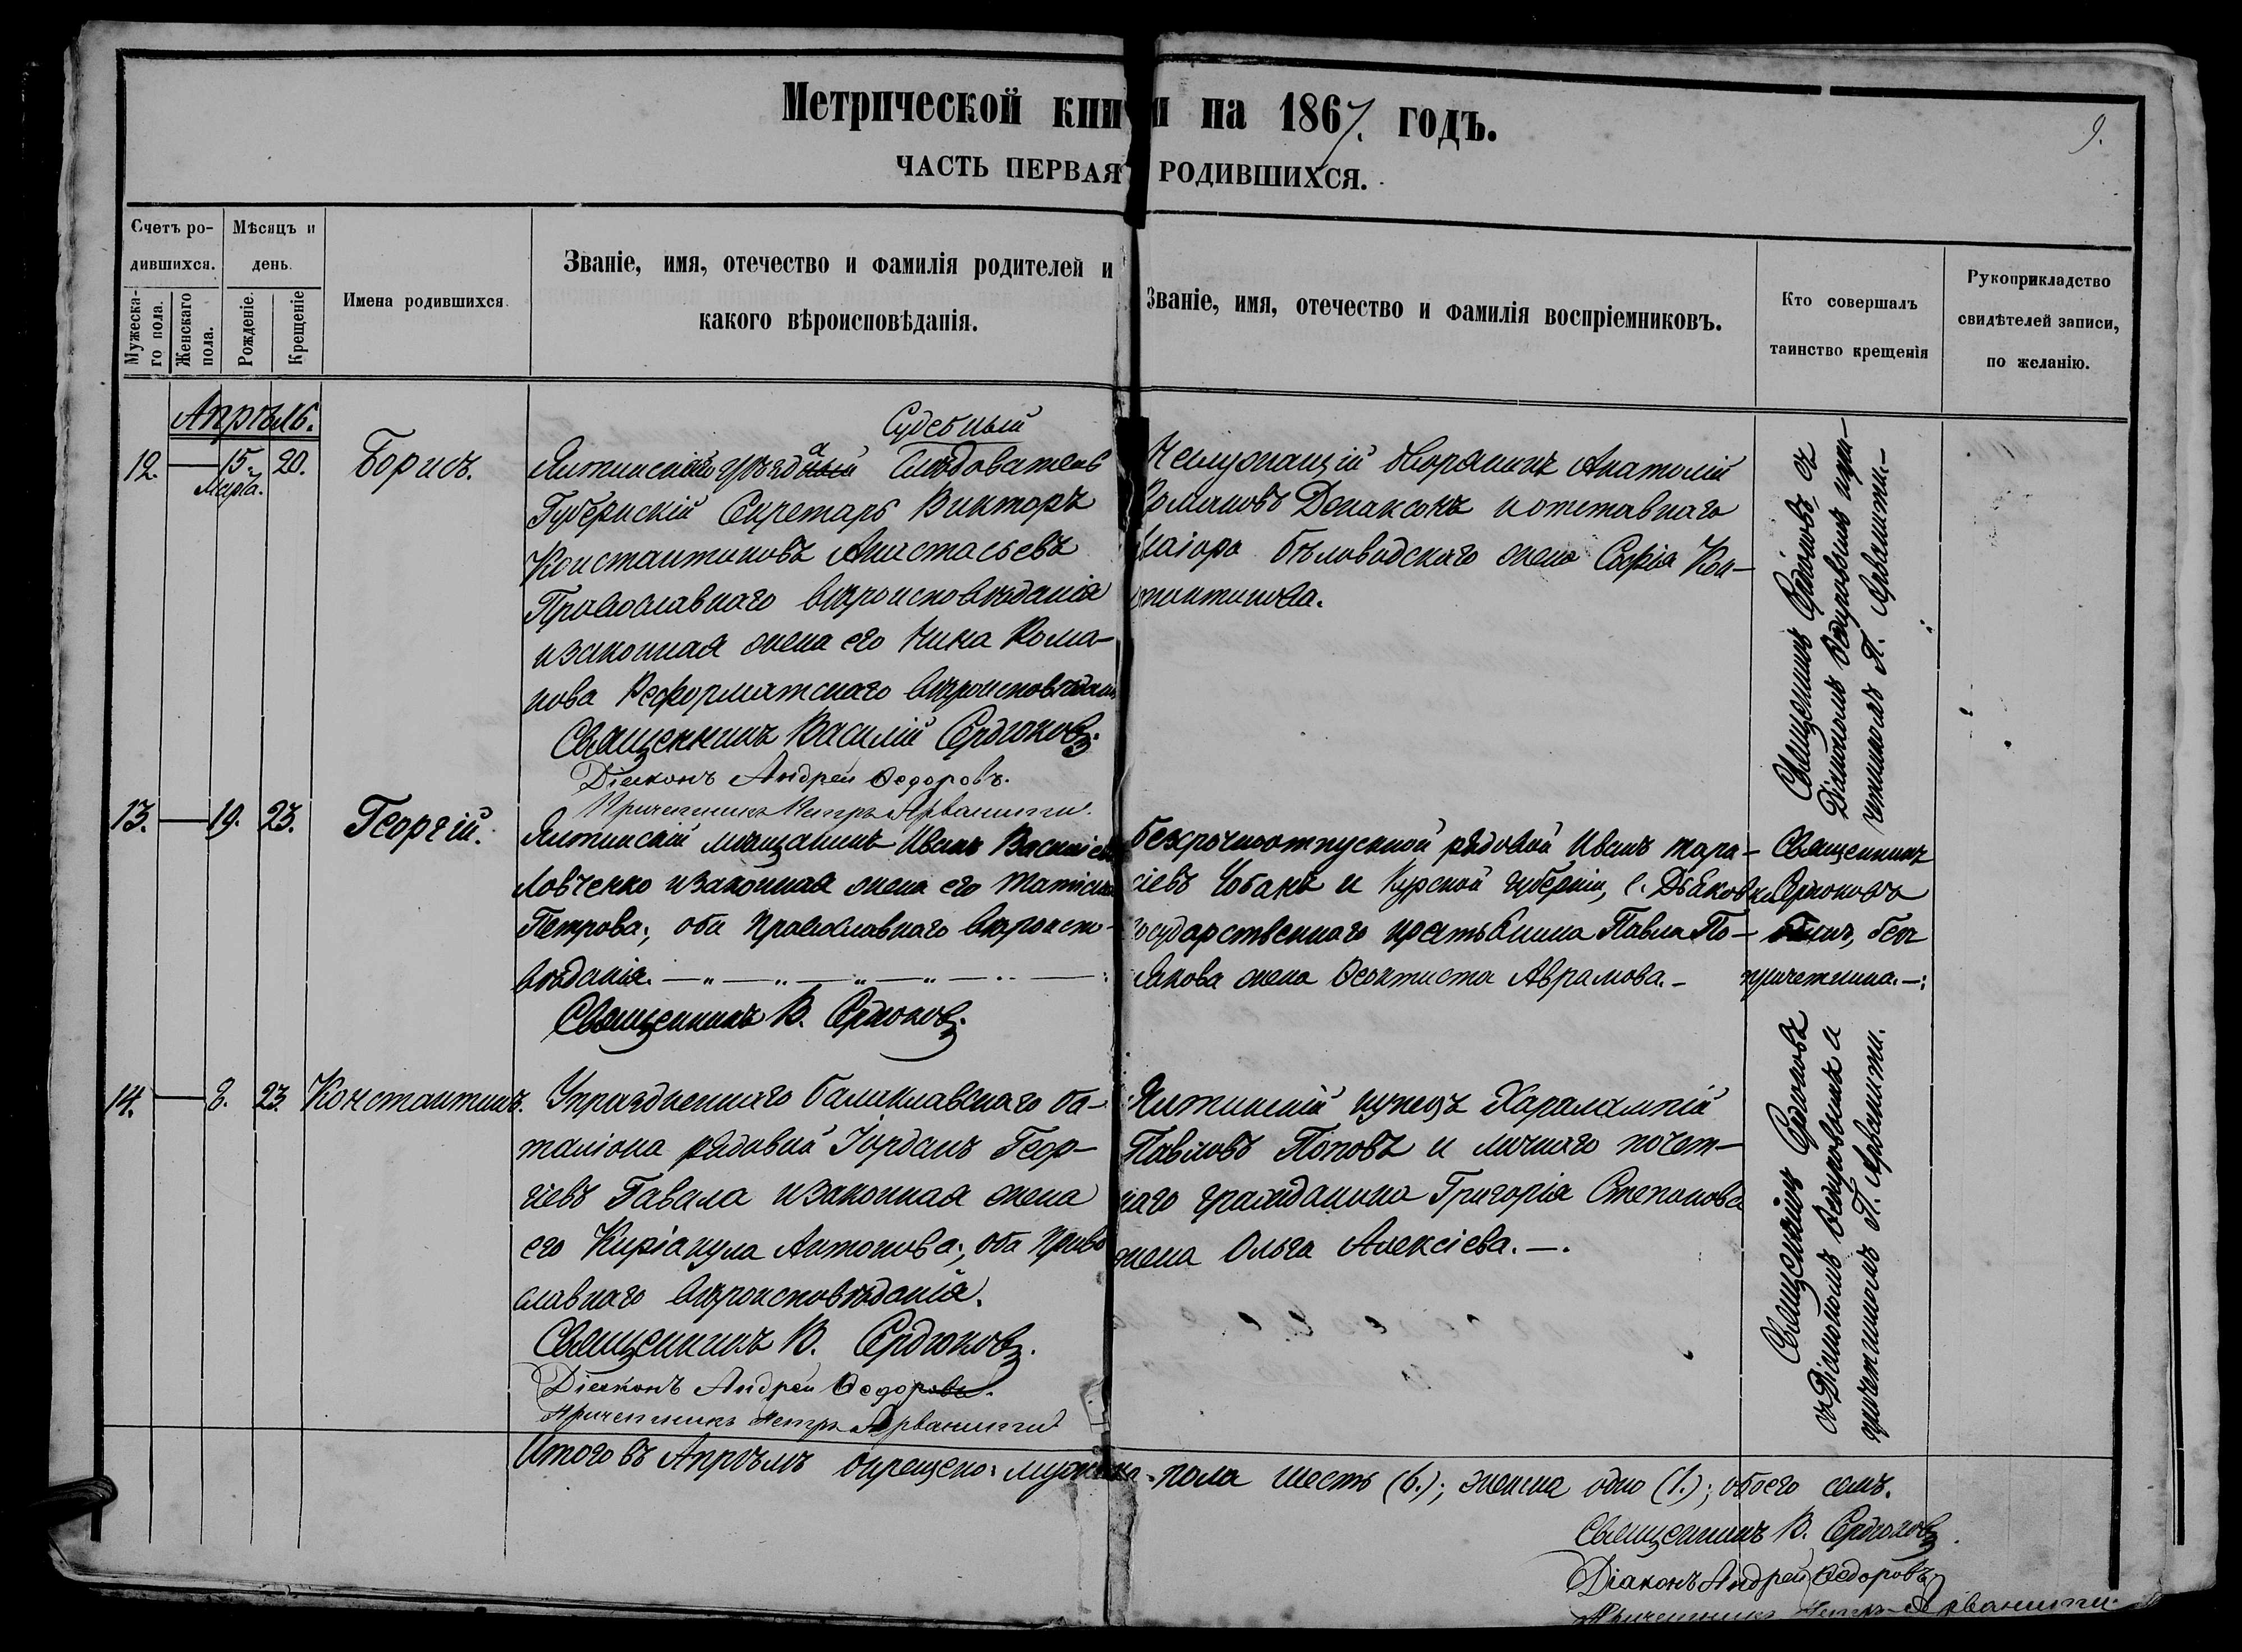 Метрической книги на 1867. годъ.
9.
ЧАСТЬ ПЕРВАЯ РОДИВШИХСЯ.
Счетъ ро-
дившихся.
Мѣсяцъ и
день.
Мужеска-
го пола.
Женскаго
пола.
Рожденіе.
Крещеніе
Имена родившихся.
Званіе, имя, отечество и фамилія родителей и
какого вѣроисповѣданія.
Званіе, имя, отечество и фамилія воспріемниковъ.
Кто совершалъ
таинство крещенія
Рукоприкладство
свидѣтелей записи,
по желанію.
Апрѣль.
12. — 15. 20.
Марта.
Борисъ.
Судебный
Ялтинскій уѣзда Слѣдователь
Губернскій Секретарь Викторъ
Константиновъ Анастасьевъ
Православнаго вѣроисповѣданія
и законная жена его Нина Рома-
нова Реформатскаго вѣроисповѣдан
Священникъ Василій Сердюковъ.
Діяконъ Андрей Ѳедоровъ.
Причетникъ Петръ Арванити.
Неслужащій дворянинъ Анатолій
Романовъ Денаксонъ и отставнаго
Маіора Бѣловодскаго жена Софія Кон-
стантинова.
Священникъ Сердюковъ съ
Діакономъ Ѳедоровымъ и при-
четникомъ П. Арванити.—
13. — 19. 23.
Георгій.
Ялтинскій мѣщанинъ Иванъ Василіев
Ловченко и законная жена его
Петрова; оба Православнаго вѣроиспо-
вѣданія.
Священникъ В. Сердюковъ.
Безсрочноотпускной рядовой Иванъ Тара-
сіевъ Чобанъ и Курской губерніи, с. Дьяковки
государственнаго крестьянина Павла По-
лякова жена Ѳеоктиста Аврамова.—
Священникъ
Сердюковъ
безъ
причетника.—:
14. — 8. 23.
Константинъ.
Упраздненнаго балаклавскаго ба-
таліона рядовой Іорданъ Геор-
гіевъ Гавала и законная жена
его Киріакула Антонова; оба Право
славнаго вѣроисповѣданія.
Священникъ В. Сердюковъ.
Діяконъ Андрей Ѳедоровъ.
Причетникъ Петръ Арванити
Ялтинскій купецъ Харалампій
Павловъ Поповъ и личнаго почет-
наго гражданина Григорія Степанова
жена Ольга Алексіева.—.
Священникъ Сердюковъ
съ Діакономъ Ѳедоровымъ и
причетникомъ П. Арванити.
Итого въ Апрѣлѣ окрещено: мужеска пола шесть (6.); женска одно (1.); обоего семь.
Священникъ В. Сердюковъ.
Діаконъ Андрей Ѳедоровъ
Причетникъ Петръ Арванити.